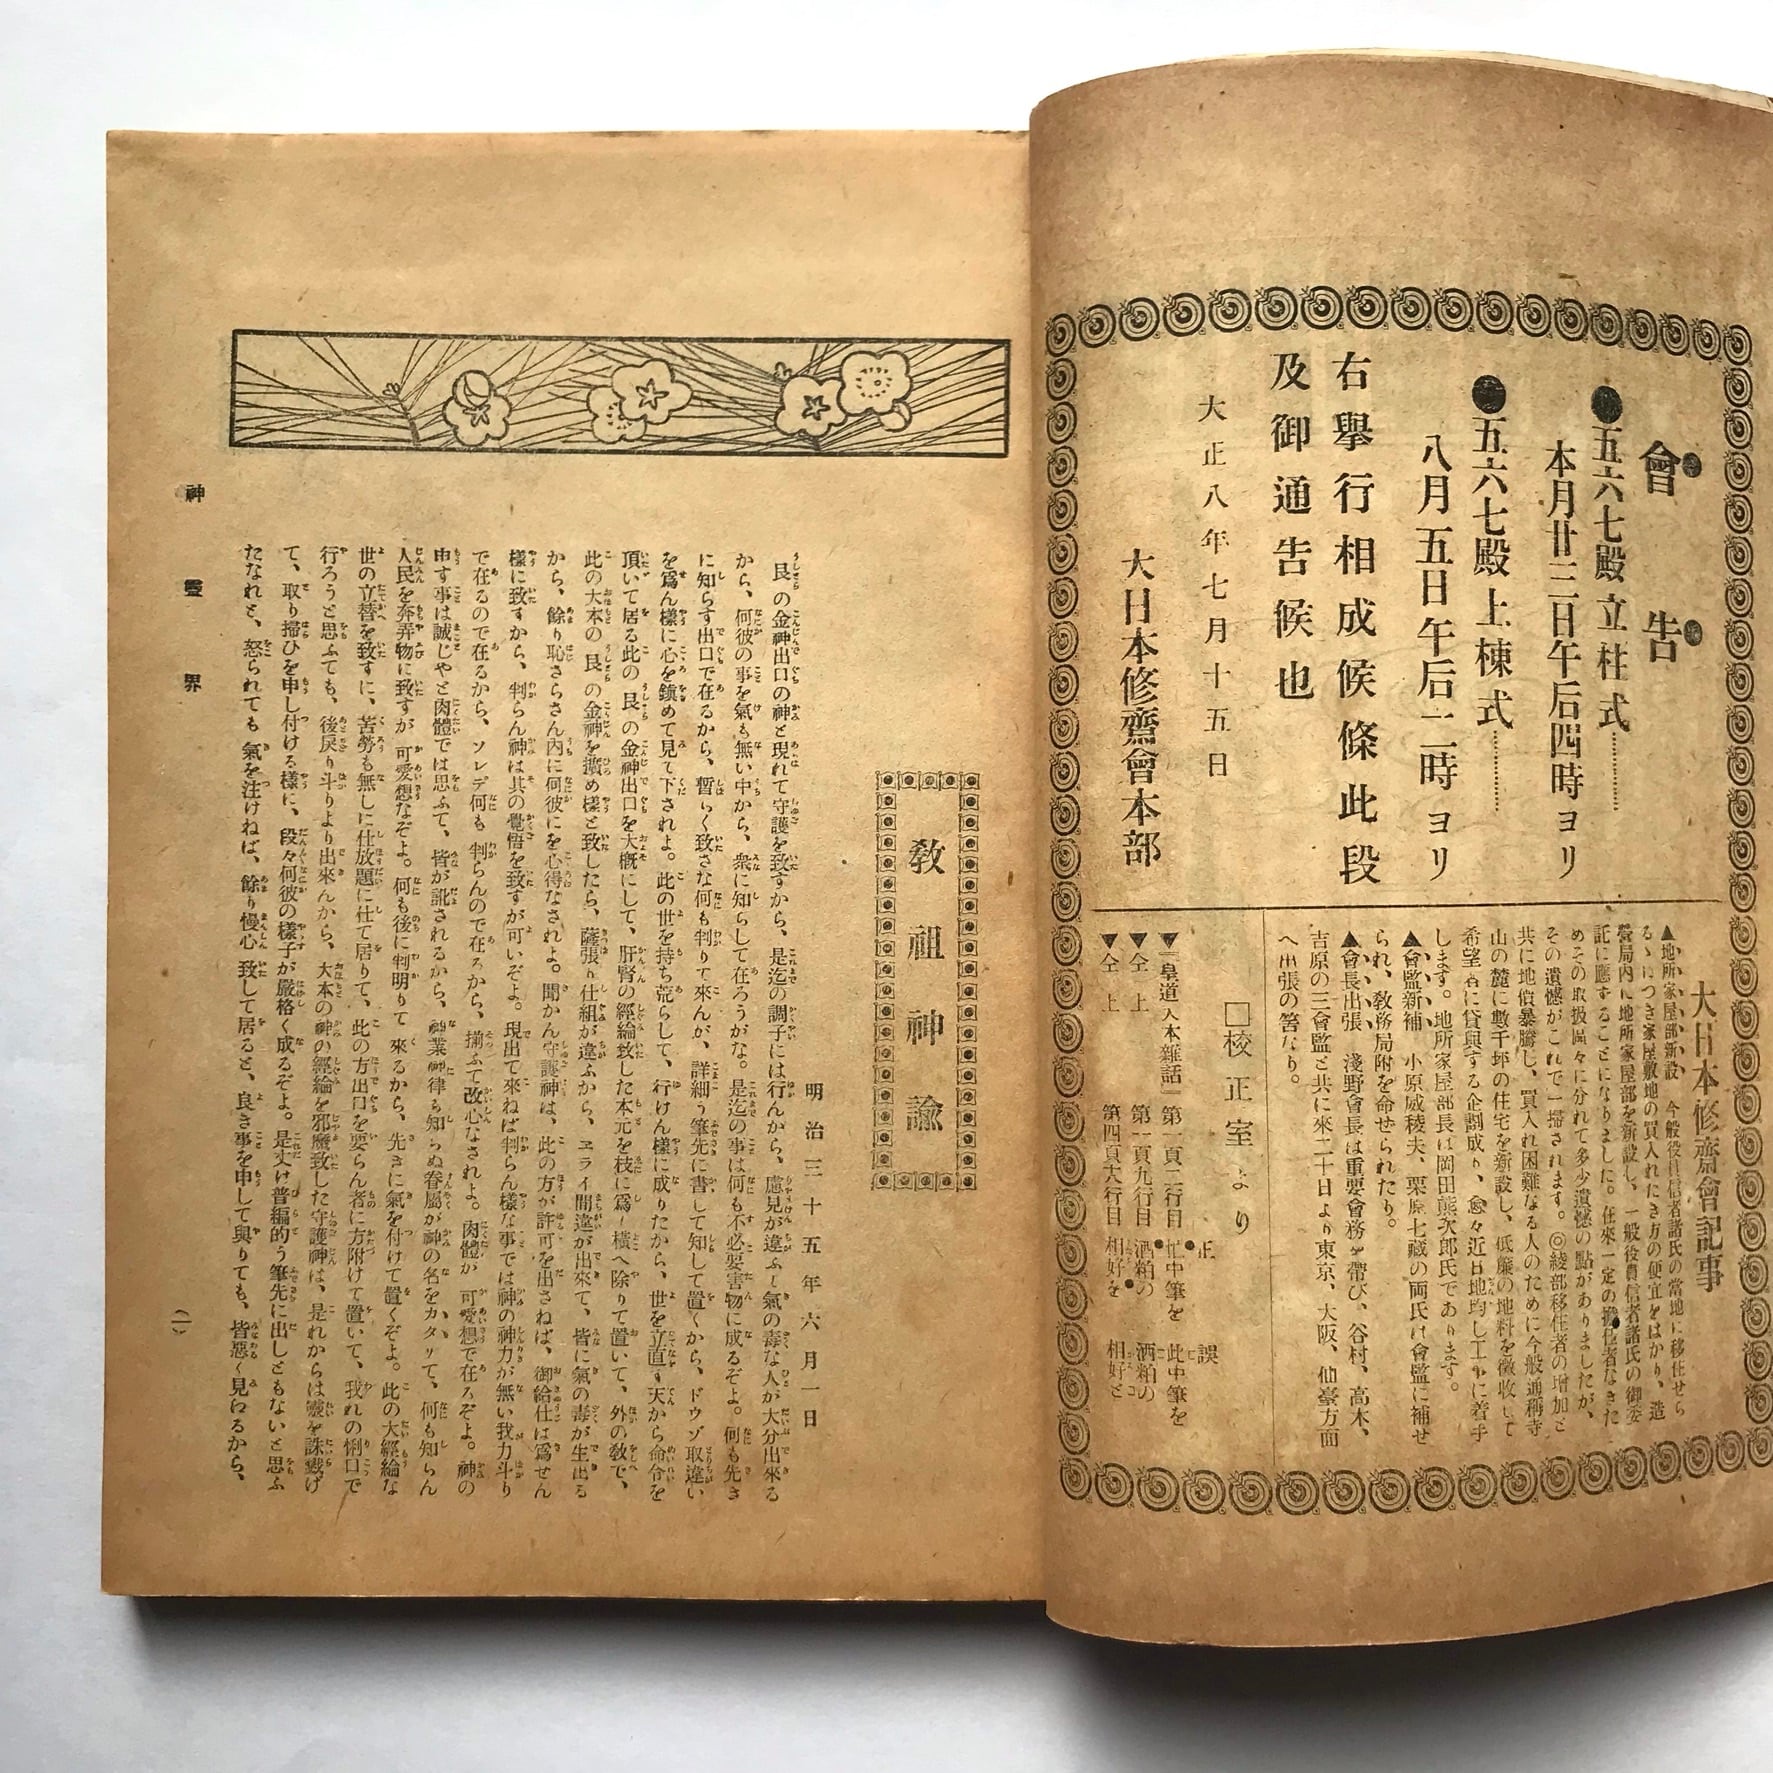 會告
●五六七殿立柱式…………
本月廿三日午后四時ヨリ
●五六七殿上棟式…………
八月五日午后二時ヨリ
右擧行相成候條此段
及御通告候也
大正八年七月十五日
大日本修齋會本部
大日本修齋會記事
▲地所家屋部新設　今般役員信者諸氏の當地に移住せら
るゝにつき家屋敷地の買入れたき方の便宜をはかり、造
營局内に地所家屋部を新設し、一般役員信者諸氏の御委
託に應ずることになりました。在來一定の擔任者なきた
めその取扱區々に分れて多少遺憾の點がありましたが、
その遺憾がこれで一掃されます。◎綾部移住者の增加と
共に地價暴騰し、買入れ困難なる人のために今般通稱寺
山の麓に數千坪の住宅を新設し、低廉の地料を徵收して
希望者に貸與する企劃成り、愈々近日地均し工事に着手
します。地所家屋部長は岡田熊次郎氏であります。
▲會監新補　小原威稜夫、栗原七藏の両氏は會監に補せ
られ、敎務局附を命せられたり。
▲會長出張　淺野會長は重要會務を帶び、谷村、高木、
吉原の三會監と共に來二十日より東京、大阪、仙臺方面
へ出張の筈なり。
□校正室より
正　誤
▼『皇道大本雜話』第一頁二行目　忙中筆を　此中筆を
▼仝上　第一頁九行目　酒粕の　酒粕の
▼仝上　第四頁六行目　相好を　相好と
敎祖神諭
明治三十五年六月一日
艮の金神出口の神と現れて守護を致すから、是迄の調子には行んから、慮見が違ふと氣の毒な人が大分出來る
から、何彼の事を氣も無い中から、衆に知らして在ろうがな。是迄の事は何も不必要害物に成るぞよ。何も先き
に知らす出口で在るから、暫らく致さな何も判りて來んが、詳細う筆先に書して知して置くから、ドウゾ取違い
を爲ん樣に心を鎭めて見て下されよ。此の世を持ち荒らして、行けん樣に成りたから、世を立直す天から命令を
頂いて居る此の艮の金神出口を大槪にして、肝腎の經綸致した本元を枝に爲し橫へ除りて置いて、外の敎で、
此の大本の艮の金神を擴め樣と致したら、薩張り仕組が違ふから、ヱライ間違が出來て、皆に氣の毒が生出る
から、餘り恥さらさん内に何彼にを心得なされよ。聞かん守護神は、此の方が許可を出さねば、御給仕は爲せん
樣に致すから、判らん神は其の覺悟を致すが可いぞよ。現出て來ねば判らん樣な事では神の神力が無い我力斗り
で在るので在るから、ソレデ何も判らんので在るから、揃ふて改心なされよ。肉體が可愛想で在るぞよ。神の
申す事は誠じやと肉體では思ふて、皆が訛されるから、神業神律も知らぬ眷屬が神の名をカタりて、何も知らん
人民を奔弄物に致すが可愛想なぞよ。何も後に判明りて來るから、先きに氣を付けて置くぞよ。此の大經綸な
世の立替を致すに、苦勞も無しに仕放題に仕て居りて、此の方出口を要らん者に方附けて置いて、我れの悧口で
行ろうと思ふても、後戾り斗りより出來んから、大本の神の經綸を邪魔致した守護神は、是れからは嚴を誅戮げ
て、取り掃ひを申し付ける樣に、段々何彼の樣子が嚴格く成るぞよ。是丈け普編的う筆先に出しともないと思ふ
たなれと、怒られても氣を注けねば、餘り慢心致して居ると、良き事を申して與りても、皆惡く見わるから、
神靈界
(一)